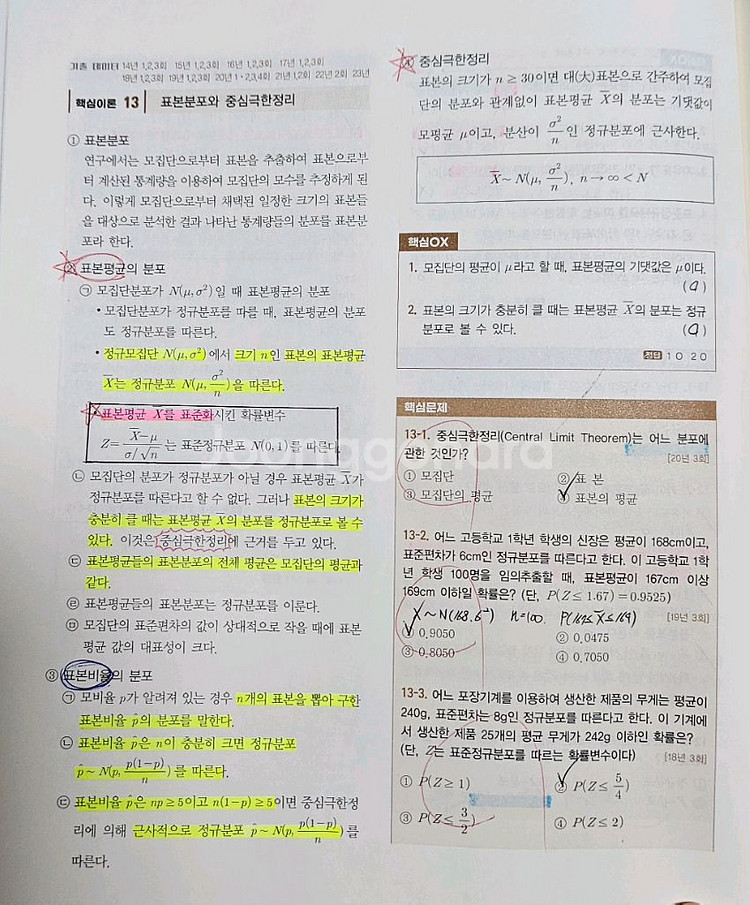 기출 데이터 14년 1,2,3회 15년 1,2,3회 16년 1,2,3회 17년 1,2,3회
18년 1,2,3회 19년 1,2,3회 20년 1·2,3,4회 21년 1,2회 22년 2회 23년
핵심이론 13 표본분포와 중심극한정리
① 표본분포
연구에서는 모집단으로부터 표본을 추출하여 표본으로부
터 계산된 통계량을 이용하여 모집단의 모수를 추정하게 된
다. 이렇게 모집단으로부터 채택된 일정한 크기의 표본들
을 대상으로 분석한 결과 나타난 통계량들의 분포를 표본분
포라 한다.
② 표본평균의 분포
㉠ 모집단분포가 N(μ, σ²)일 때 표본평균의 분포
• 모집단분포가 정규분포를 따를 때, 표본평균의 분포
도 정규분포를 따른다.
• 정규모집단 N(μ, σ²)에서 크기 n인 표본의 표본평균
X̄는 정규분포 N(μ, σ²/n)을 따른다.
표본평균 X̄를 표준화시킨 확률변수
Z = (X̄−μ)/(σ/√n) 는 표준정규분포 N(0, 1)를 따른다
㉡ 모집단의 분포가 정규분포가 아닐 경우 표본평균 X̄가
정규분포를 따른다고 할 수 없다. 그러나 표본의 크기가
충분히 클 때는 표본평균 X̄의 분포를 정규분포로 볼 수
있다. 이것은 중심극한정리에 근거를 두고 있다.
㉢ 표본평균들의 표본분포의 전체 평균은 모집단의 평균과
같다.
㉣ 표본평균들의 표본분포는 정규분포를 이룬다.
㉤ 모집단의 표준편차의 값이 상대적으로 작을 때에 표본
평균 값의 대표성이 크다.
③ 표본비율의 분포
㉠ 모비율 p가 알려져 있는 경우 n개의 표본을 뽑아 구한
표본비율 p̂의 분포를 말한다.
㉡ 표본비율 p̂은 n이 충분히 크면 정규분포
p̂ ~ N(p, p(1−p)/n)를 따른다.
㉢ 표본비율 p̂은 np ≥ 5이고 n(1−p) ≥ 5이면 중심극한정
리에 의해 근사적으로 정규분포 p̂ ~ N(p, p(1−p)/n)를
따른다.
④ 중심극한정리
표본의 크기가 n ≥ 30이면 대(大)표본으로 간주하여 모집
단의 분포와 관계없이 표본평균 X̄의 분포는 기댓값이
모평균 μ이고, 분산이 σ²/n인 정규분포에 근사한다.
X̄ ~ N(μ, σ²/n), n → ∞ < N
핵심OX
1. 모집단의 평균이 μ라고 할 때, 표본평균의 기댓값은 μ이다.
( O )
2. 표본의 크기가 충분히 클 때는 표본평균 X̄의 분포는 정규
분포로 볼 수 있다. ( O )
정답 1 O 2 O
핵심문제
13-1. 중심극한정리(Central Limit Theorem)는 어느 분포에
관한 것인가? [20년 3회]
① 모집단 ② 표 본
③ 모집단의 평균 ④ 표본의 평균
13-2. 어느 고등학교 1학년 학생의 신장은 평균이 168cm이고,
표준편차가 6cm인 정규분포를 따른다고 한다. 이 고등학교 1학
년 학생 100명을 임의추출할 때, 표본평균이 167cm 이상
169cm 이하일 확률은? (단, P(Z ≤ 1.67) = 0.9525)
[19년 3회]
X ~ N(168, 6²) n=100. P(167≤X̄≤169)
① 0.9050 ② 0.0475
③ 0.8050 ④ 0.7050
13-3. 어느 포장기계를 이용하여 생산한 제품의 무게는 평균이
240g, 표준편차는 8g인 정규분포를 따른다고 한다. 이 기계에
서 생산한 제품 25개의 평균 무게가 242g 이하인 확률은?
(단, Z는 표준정규분포를 따르는 확률변수이다) [18년 3회]
① P(Z ≥ 1) ② P(Z ≤ 5/4)
③ P(Z ≤ 3/2) ④ P(Z ≤ 2)
Joonggonara